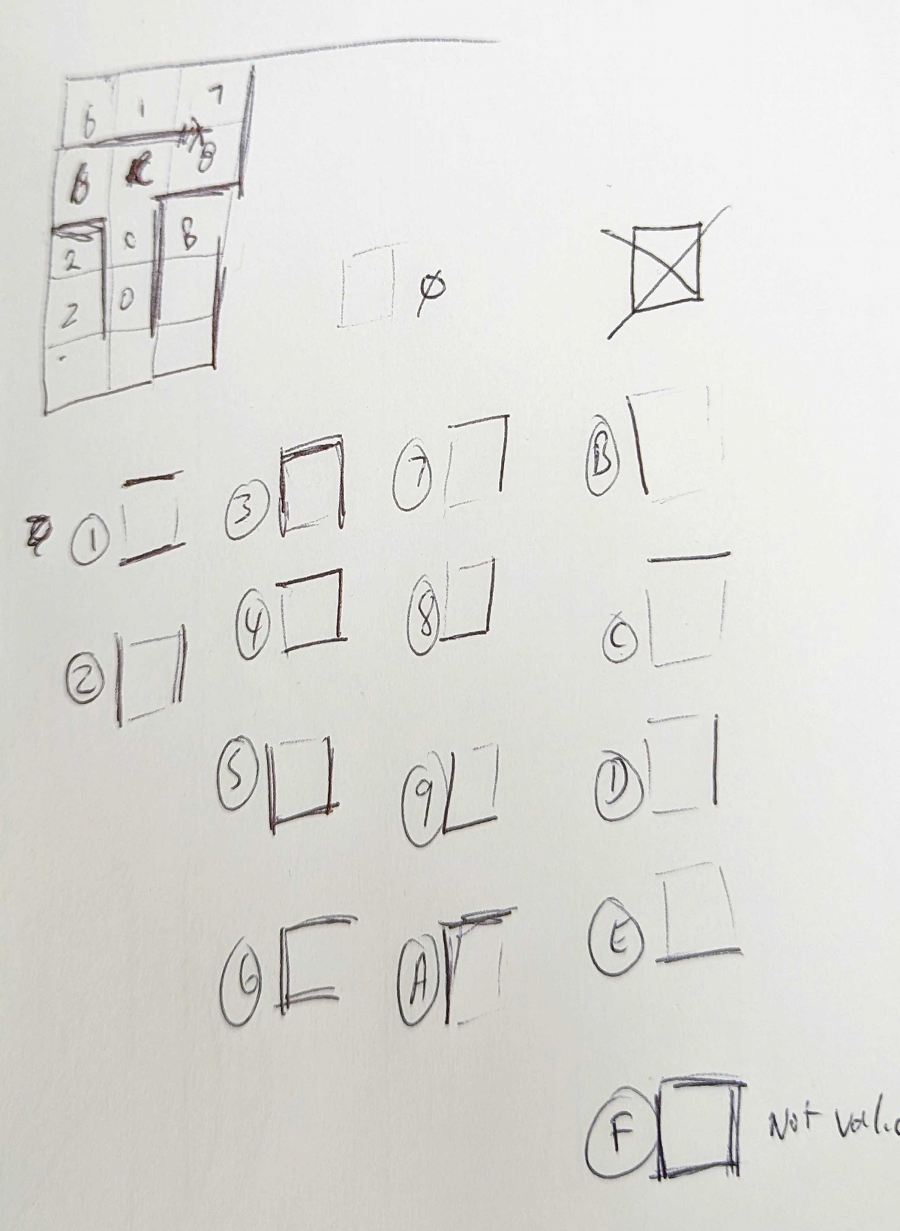 6 1 7
B C B
2 0 8
2 0
Ø
1
2
3
4
5
6
7
8
9
A
B
C
D
E
F Not valid